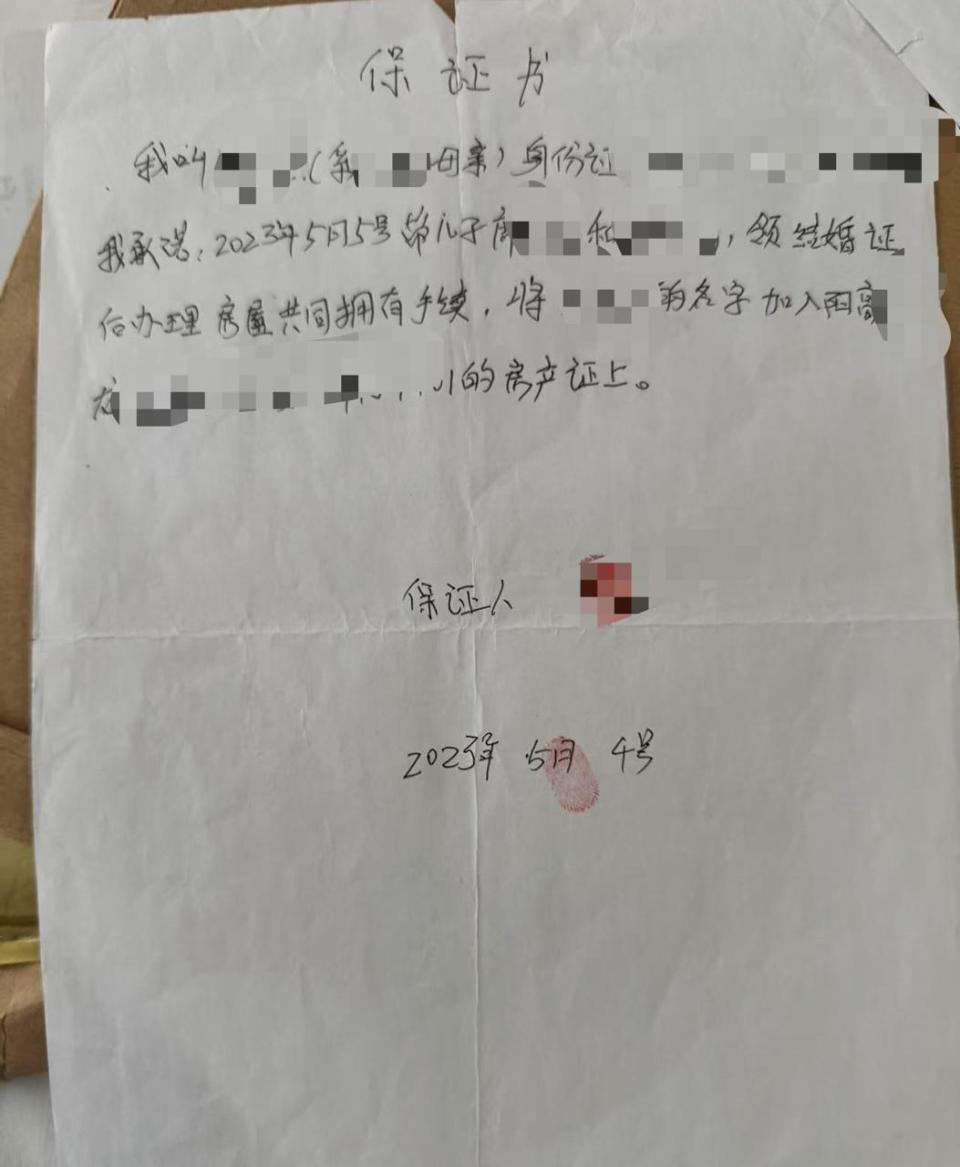 保证书
我叫(系母亲)身份证
我承诺:2023年5月5号带儿子和,领结婚证
后办理房屋共同拥有手续,将的名字加入
的房产证上。
保证人
2023年5月4号